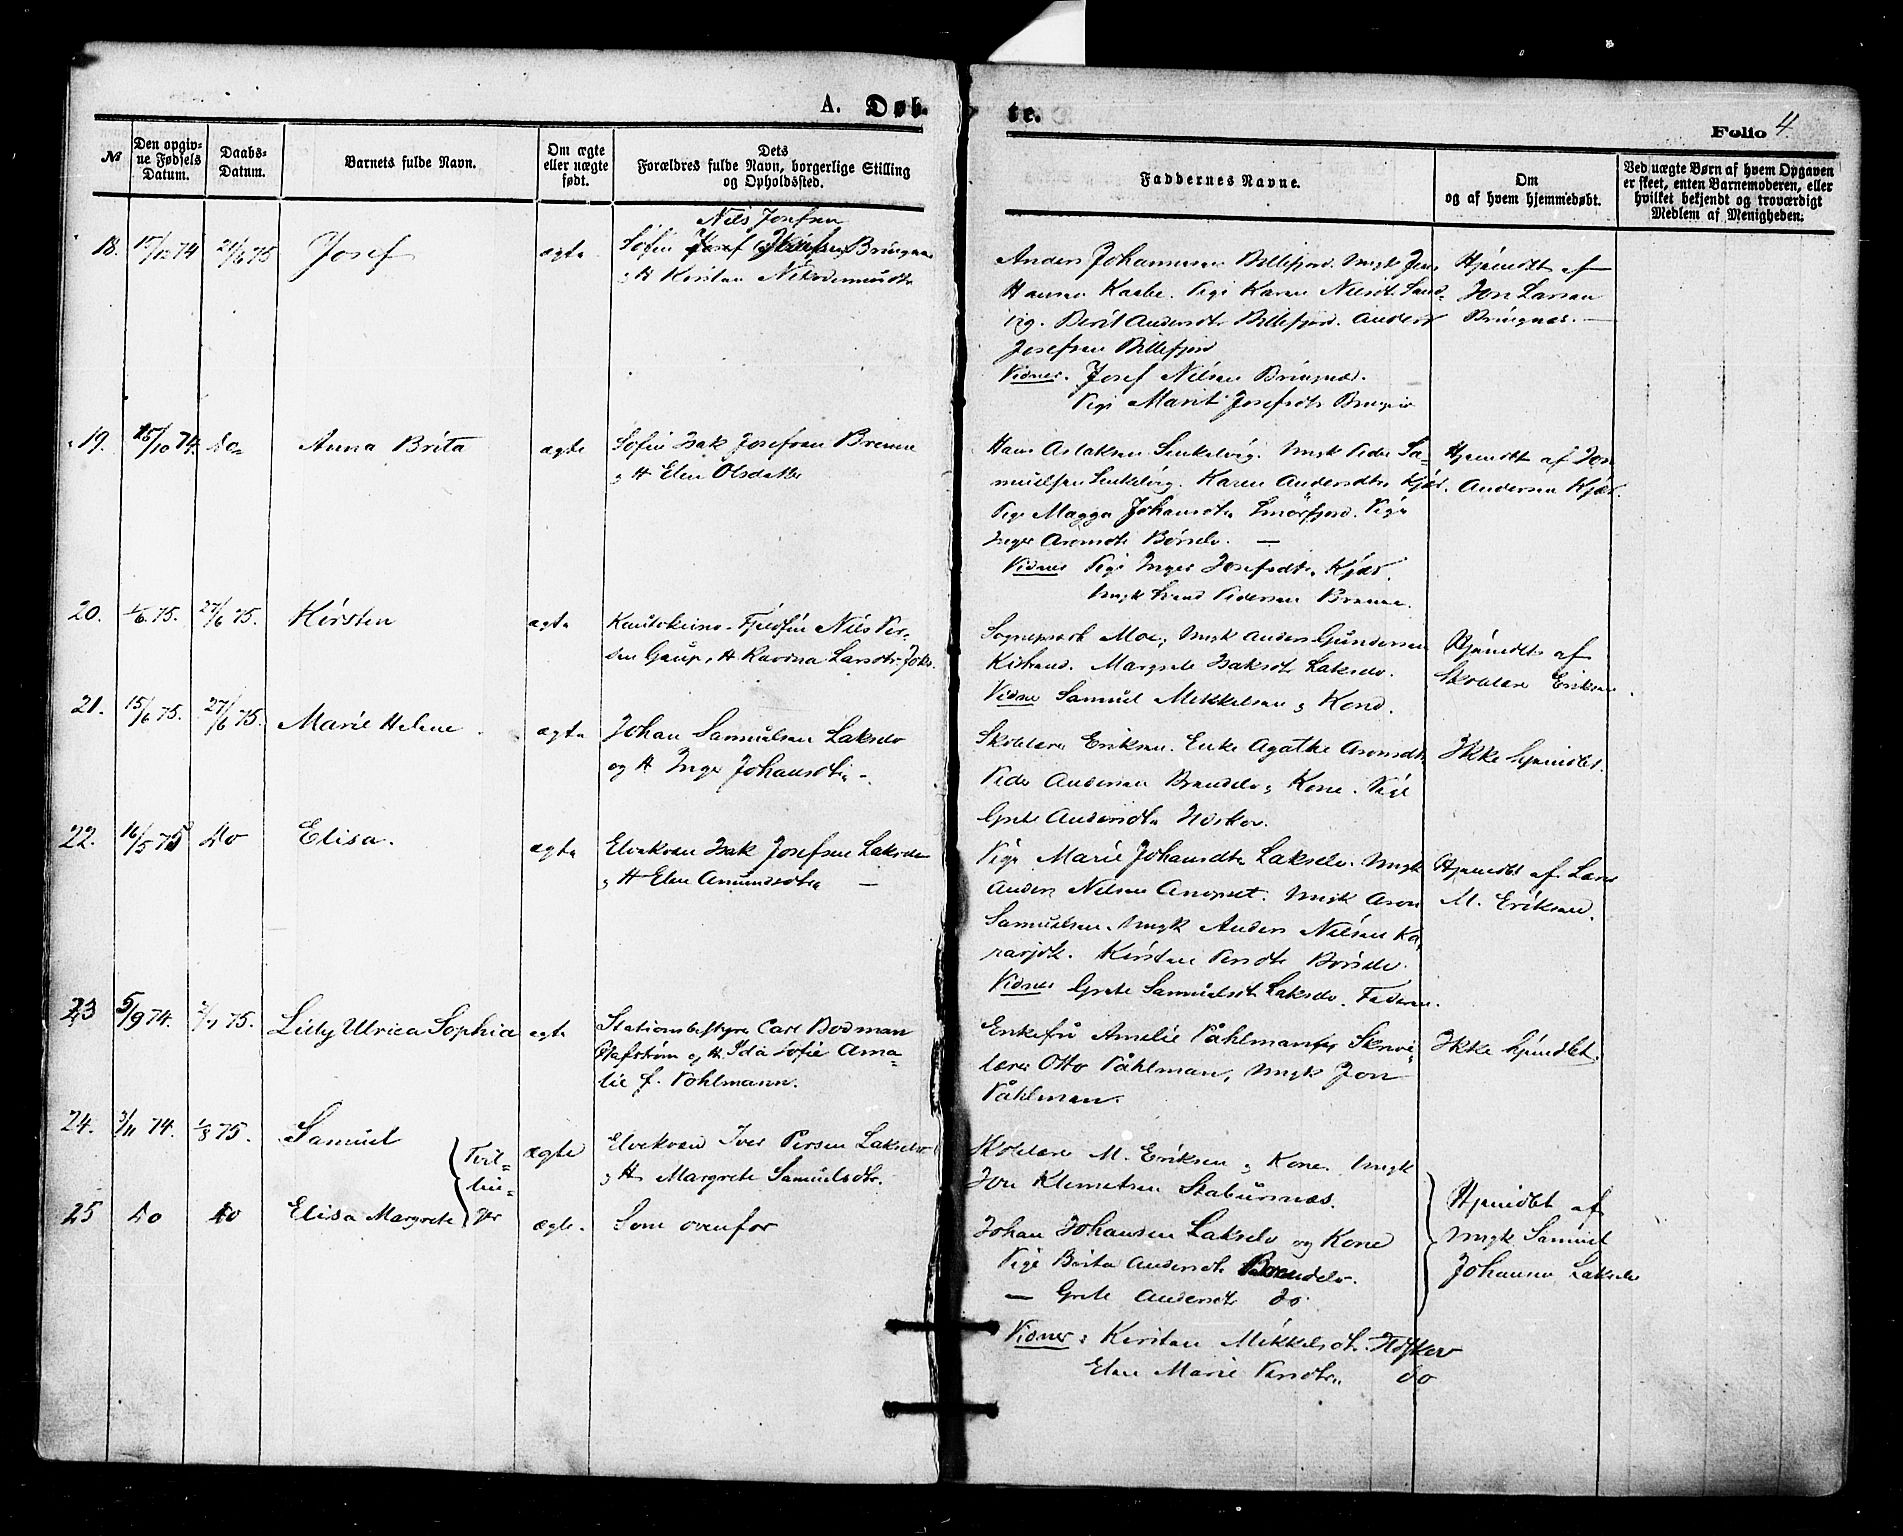 A. Døb-
te.
Folio 4
№
Den opgiv-
ne Fødsels
Datum.
Daabs-
Datum.
Barnets fulde Navn.
Om ægte
eller uægte
født.
Dets
Forældres fulde Navn, borgerlige Stilling
og Opholdssted.
Faddernes Navne.
Om
og af hvem hjemmedøbt.
Ved uægte Børn af hvem Opgaven
er skeet, enten Barnemoderen, eller
hvilket bekjendt og troværdigt
Medlem af Menigheden.
18. 74 21/6 75 Josef ægte
Nils Josefsen
Søfin Bringnæs
og H Kirsten Nikodemusdtr
Anders Johannesen Billefjord. Ungk Jens
Hansen Kaabe. Pige Karen Nilsdt. Sand-
vig. Berit Andersdtr Billefjord. Anders
Josefsen Billefjord
Vidner. Josef Nilsen Bringnæs.
Pige Marit Josefsdtr Bringnæs
Hjemdøbt af
Jon Larsen
Bringnæs. —
19. /10 74. do Anna Brita ægte
Søfin Isak Josefsen Brenna
og H Elen Olsdatter
Hans Aslaksen Smkelvig. Ungk Peder Sa-
muelsen Smkelvig. Karen Andersdtr Kjæs.
Pige Magga Johansdtr Smörfjord. Pige
Inger Aronsdtr Börselv. —
Vidner Pige Inger Josefsdtr Kjæs.
Ungk Pedersen Brenna.
Hjemdøbt af Jon
Andersen Kjæs.
20. /6 75. 27/6 75. Kirsten ægte
Kautokeino-Fjeldfin Nils Per-
sen Gaup, H Ravna Larsdtr Joks.
Sogneprest Moe, Ungk Anders Gundersen
Kistrand. Margrete Isaksdt Lakselv.
Vidne Samuel Mikkelsen og Kone.
Hjemdöbt af
Skolelærer Eriksen.
21. 15/6 75. 27/6 75. Marie Helene. ægte
Johan Samuelsen Lakselv
og H Inger Johansdtr —
Skolelærer Eriksen. Enke Agathe Aronsdtr
Peder Andersen Brændelv og Kone. Pige
Grete Andersdtr
Ikke hjemdöbt.
22. 16/5 75 do Elisa. ægte
Elvekvæn Isak Josefsen Lakselv
og H Elen Amundsdtr —
Pige Marie Johansdtr Lakselv. Ungk
Anders Nilsen Anopset. Ungk Aron
Samuelsen. Ungk Anders Nilsen Ka-
rasjok. Kirsten Persdtr Börselv.
Vidner Grete Samuelsdt Lakselv. Faderen.
Hjemdöbt af Lærer
M. Eriksen.
23 5/9 74. 75. Lilly Ulrica Sophia ægte
Stationsbestyrer Carl Bodman
Olafström og H. Ida Sofie Ama-
lie f. Pohlmann.
Enkefru Amelie Påhlman,
lærer Otto Påhlman, Ungk Jon
Påhlman.
Ikke hjemdöbt.
24. /11 74. 1/8 75. Samuel ægte
Tvil-
lin-
ger
Elvekvæn Iver Persen Lakselv
og H Margrete Samuelsdtr.
Skolelærer M. Eriksen og Kone. Ungk
Jon Klemetsen Stabursnæs.
25 do do Elisa Margrete ægte. Som ovenfor
Johan Johansen Lakselv og Kone
Pige Brita Andersdt Brændelv.
— Grete Andersdtr do.
Vidner: Kirsten Mikkelsdt.
Elen Marie Persdtr. do
Hjemdöbt af
Ungk Samuel
Johansen Lakselv